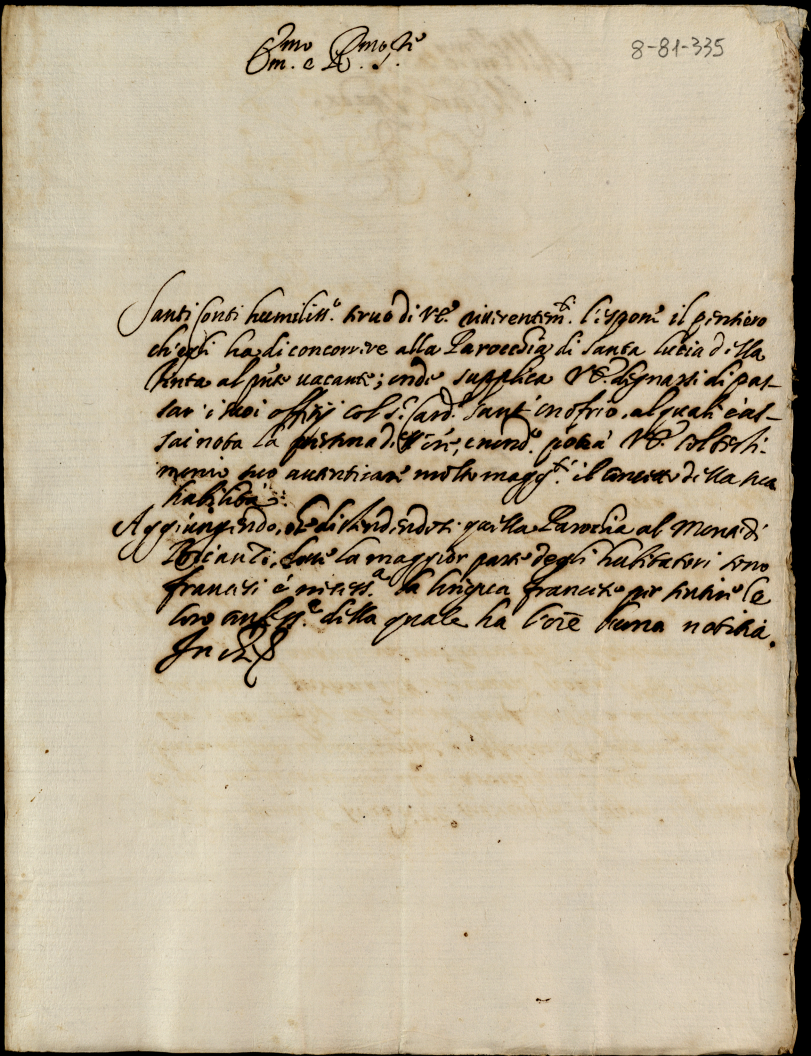 8-81-335
Em.mo e R.mo S.re
Santi Conti humiliss.o seruo di V.E. riuerentem.te l'espone il pensiero
ch'egli ha di concorrere alla Parocchia di Santa Lucia della
Tinta al pnte uacante; onde supplica V.E. degnarsi di pas-
sar i suoi offitij col S.r Card. Sant'Onofrio, al quale è as-
sai nota la persona dell'Ore, essend.o potrà V.E. col testi-
monio suo autenticare molto magg.te il concetto della sua
habilità.
Aggiungendo, che distendendosi quella Parochia al Monte di
Br, doue la maggior parte degli habitatori sono
francesi è necess.a la lingua francese per sentire le
loro confess.ni della quale ha l'Ore buona notitia.